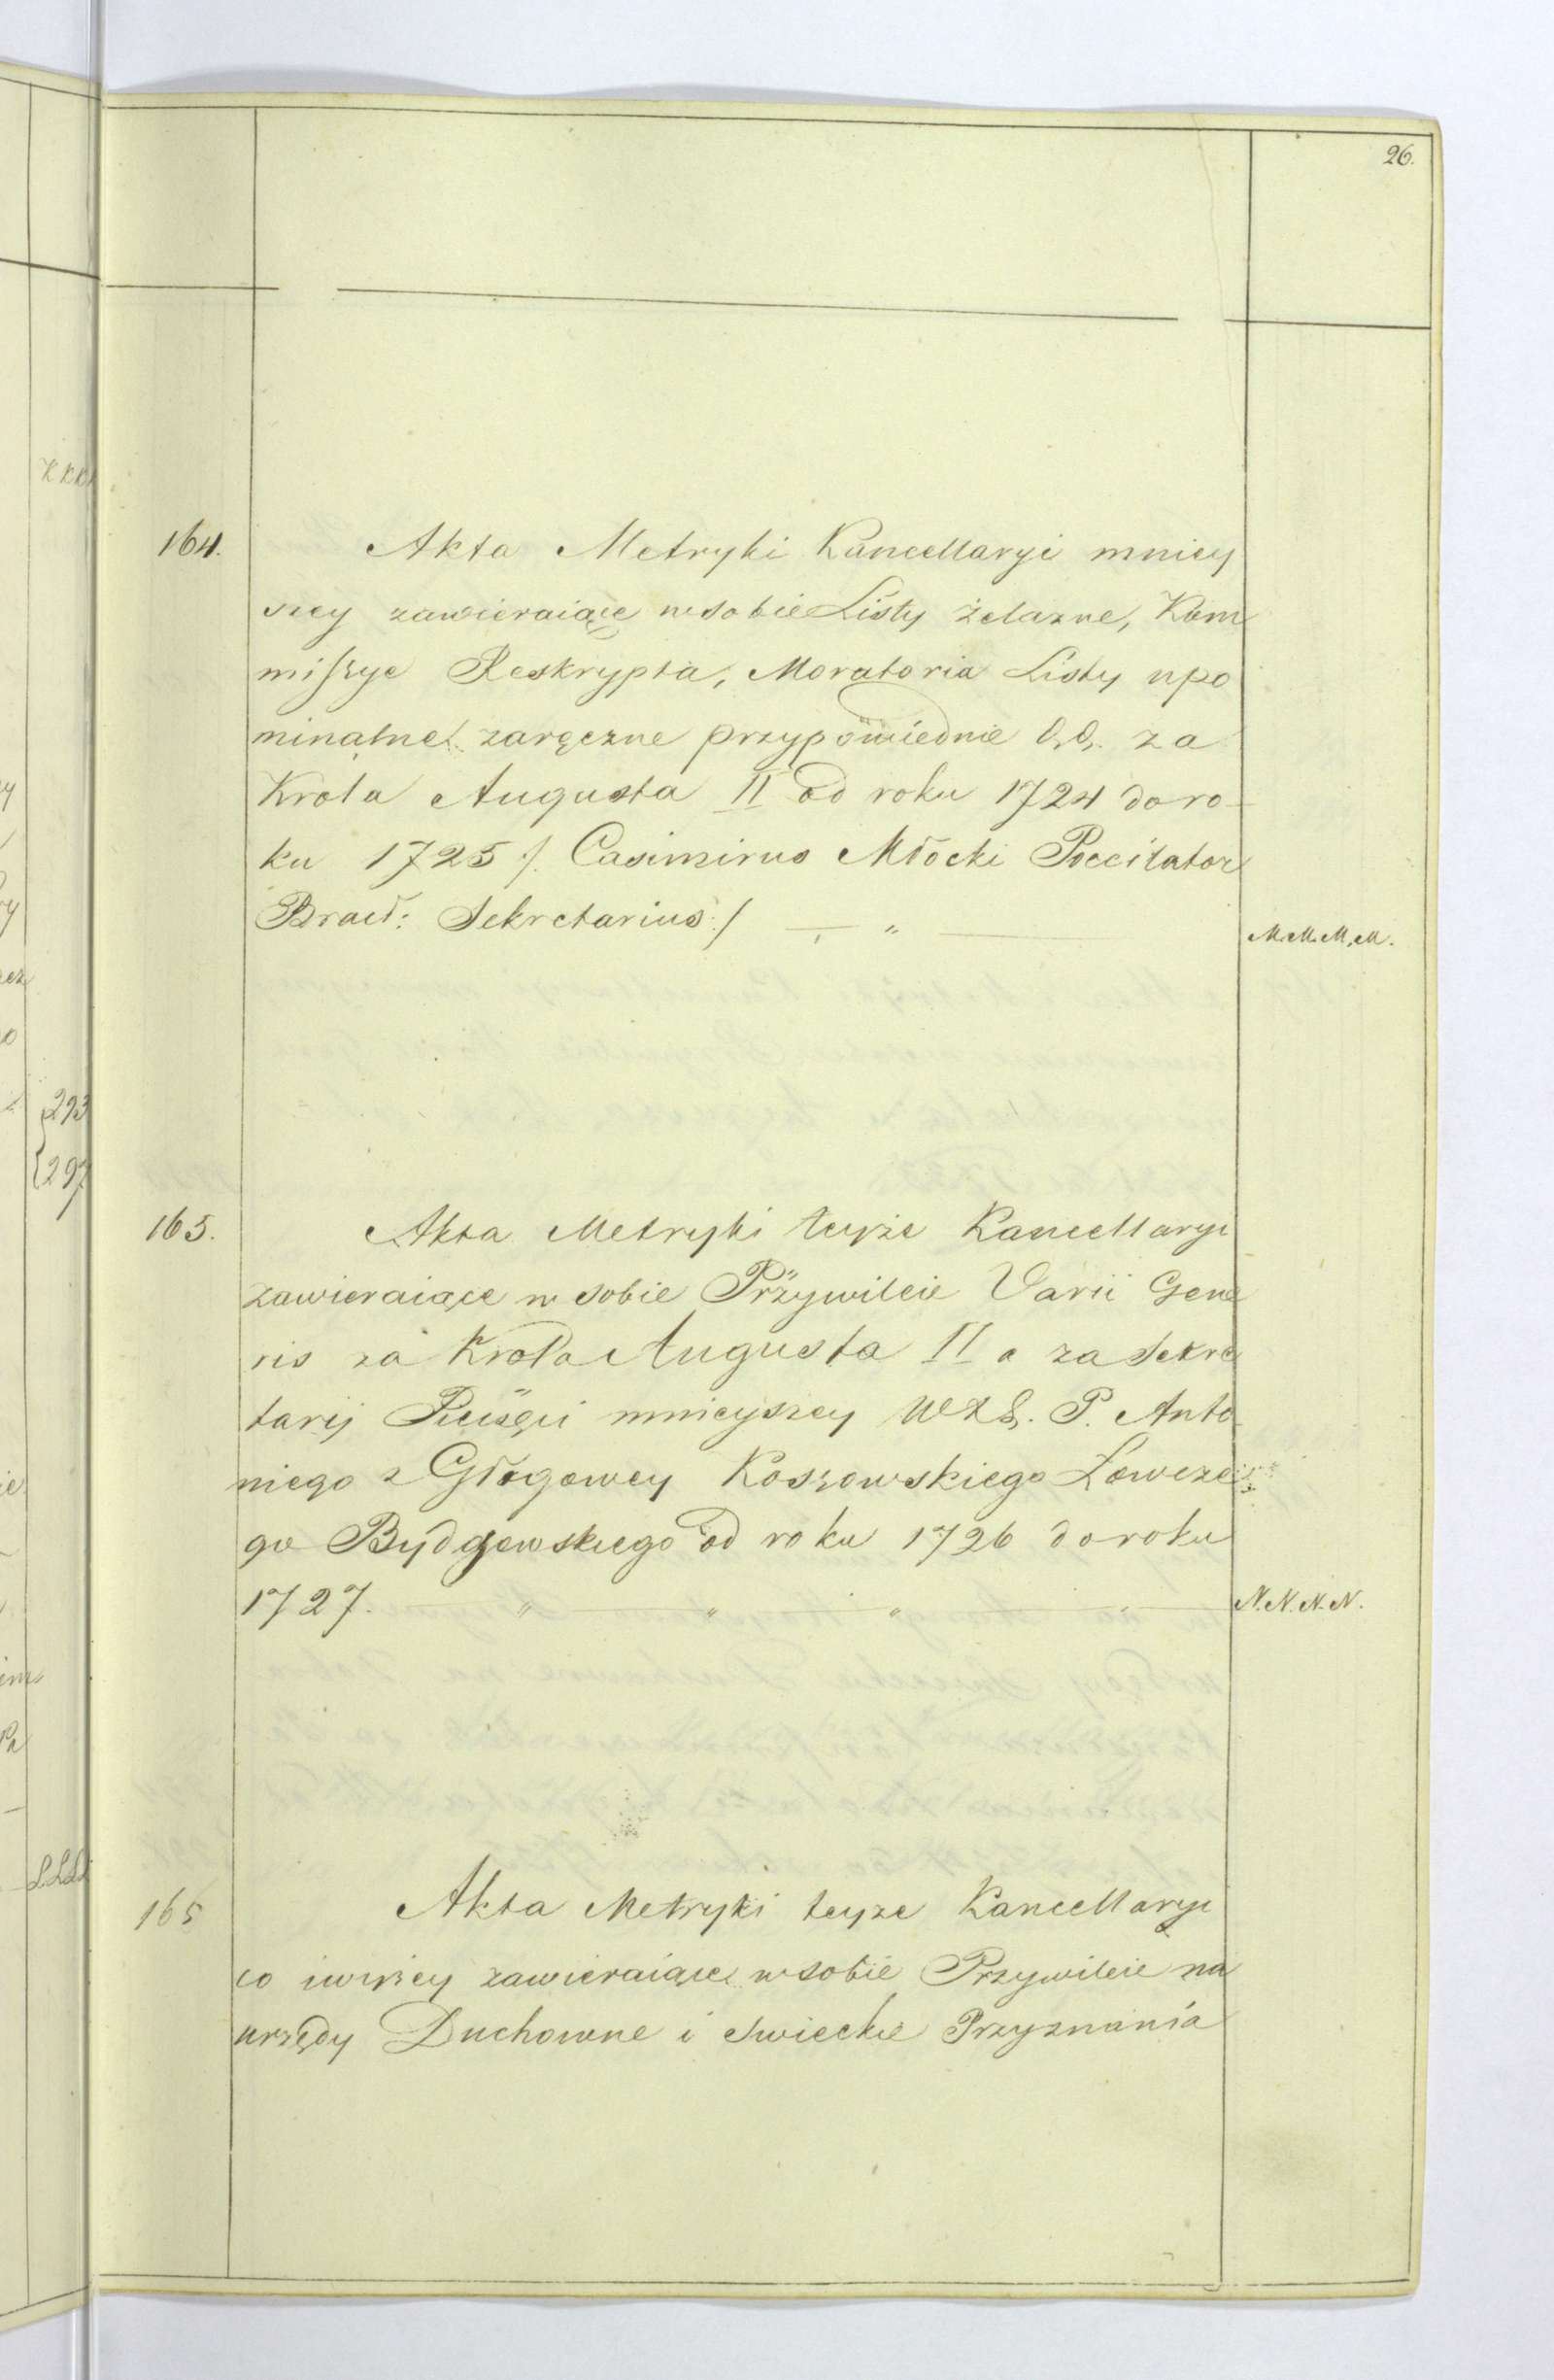 26.
164. Akta Metryki Kancellaryi mniey
szey zawieraiące w sobie Listy żelazne, Kom
missye Reskrypta, Moratoria Listy upo
minalne zaręczne przypowiednie za
Krola Augusta II od roku 1724 do ro-
ku 1725 /. Casimirus Młocki Poccilator
Bracł: Sekretarius /. — „ —
M.M.M.M.
165. Akta Metryki teyże Kancellaryi
zawieraiące w sobie Przywileie Varii Gene
ris za Krola Augusta II a za Sekre
taryi Pieisęci mnieyszey P. Anto
niego z Głogowey Koszowskiego Łowcze
go Bydgowskiego od roku 1726 do roku
1727. — „ — „ — „ — „ —
N.N.N.N.
165 Akta Metryki teyże Kancellaryi
co i wyżey zawieraiące w sobie Przywileie na
urzędy Duchowne i Swieckie Przyznania
293
297